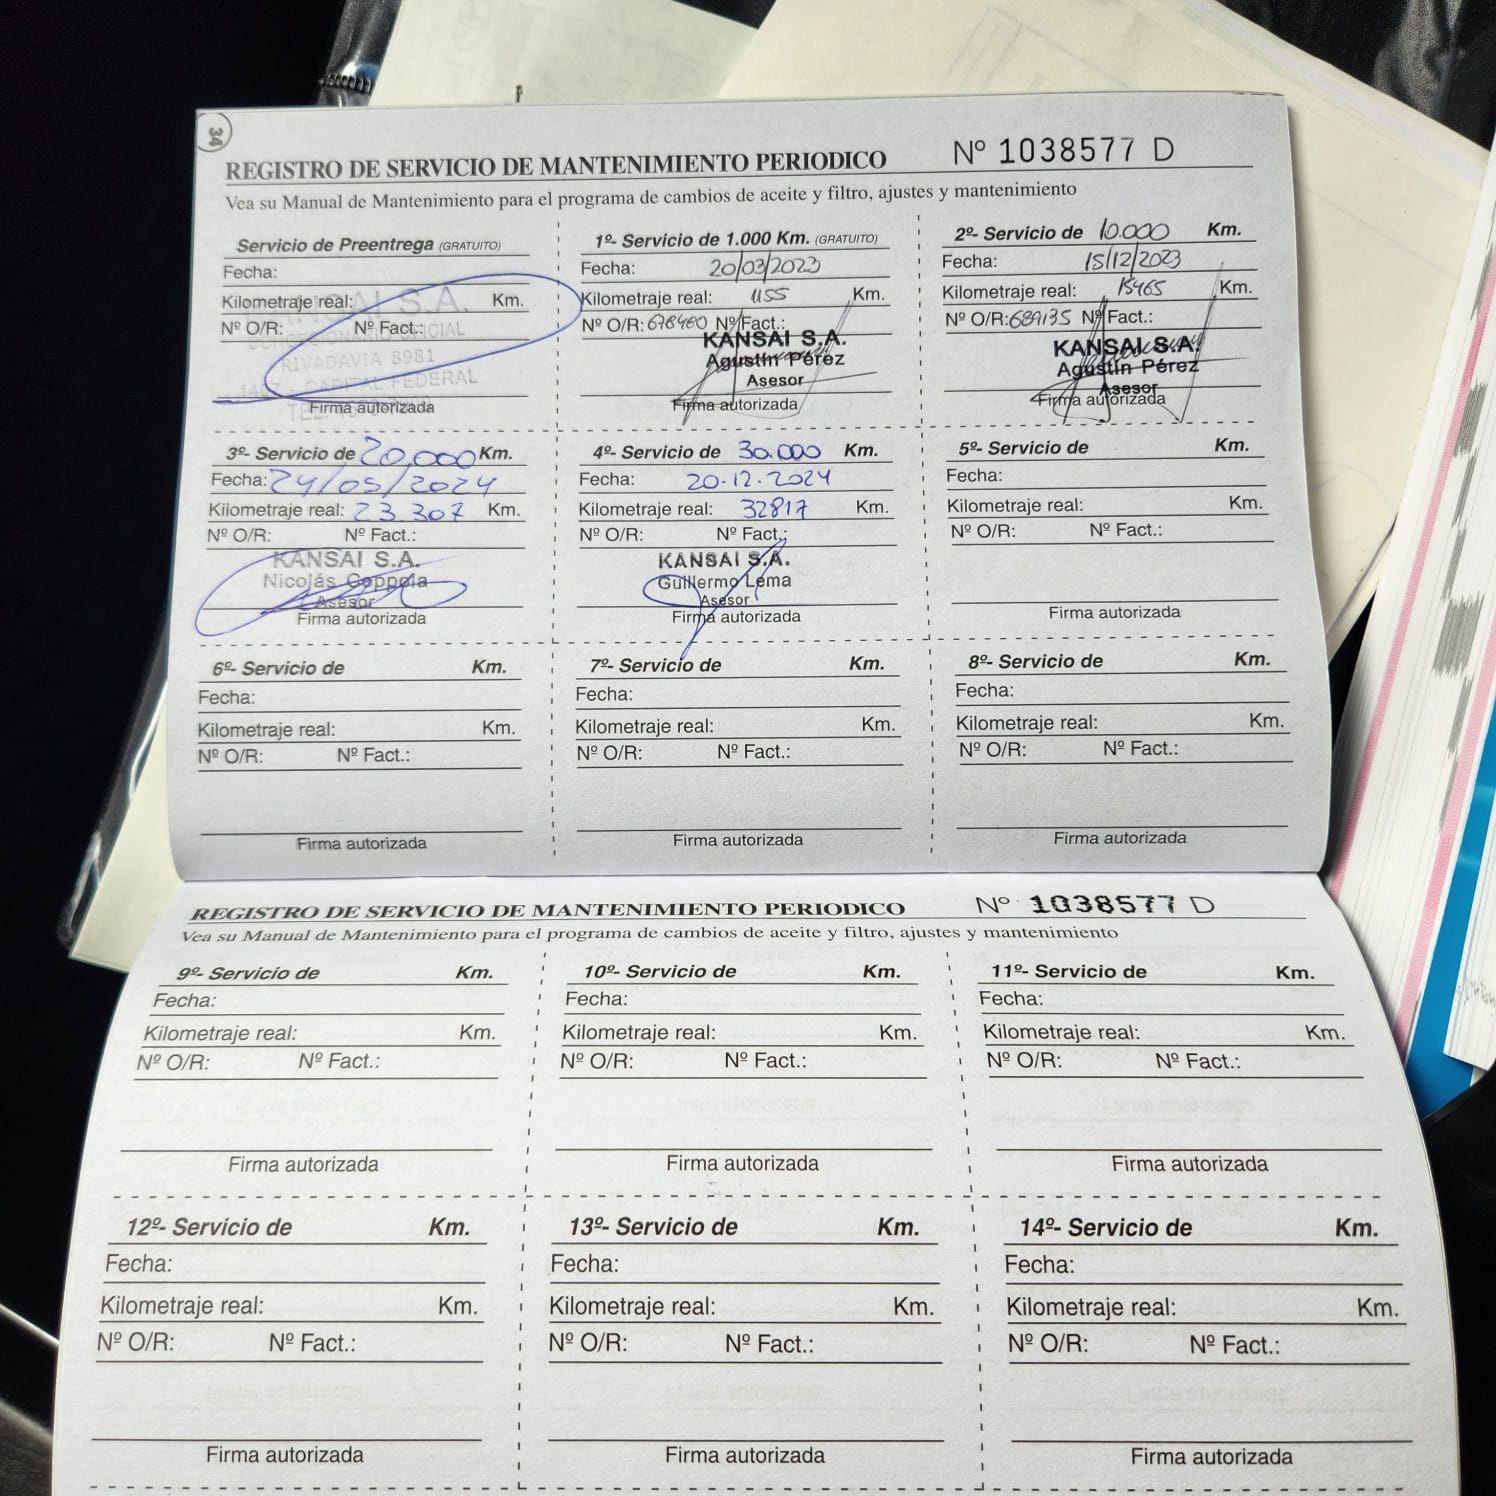 34
REGISTRO DE SERVICIO DE MANTENIMIENTO PERIODICO Nº 1038577 D
Vea su Manual de Mantenimiento para el programa de cambios de aceite y filtro, ajustes y mantenimiento
Servicio de Preentrega (GRATUITO)
Fecha:
Kilometraje real: Km.
Nº O/R: Nº Fact.:
KANSAI S.A.
CONCESIONARIO OFICIAL
RIVADAVIA 8981
CAPITAL FEDERAL
Firma autorizada
1º- Servicio de 1.000 Km. (GRATUITO)
Fecha: 20/03/2023
Kilometraje real: 1155 Km.
Nº O/R: 678460 Nº Fact.:
KANSAI S.A.
Agustín Pérez
Asesor
Firma autorizada
2º- Servicio de 10.000 Km.
Fecha: 15/12/2023
Kilometraje real: 15465 Km.
Nº O/R: 689135 Nº Fact.:
KANSAI S.A.
Agustín Pérez
Asesor
Firma autorizada
3º- Servicio de 20.000 Km.
Fecha: 24/05/2024
Kilometraje real: 23.307 Km.
Nº O/R: Nº Fact.:
KANSAI S.A.
Nicolás Coppola
Asesor
Firma autorizada
4º- Servicio de 30.000 Km.
Fecha: 20.12.2024
Kilometraje real: 32817 Km.
Nº O/R: Nº Fact.:
KANSAI S.A.
Guillermo Lema
Asesor
Firma autorizada
5º- Servicio de Km.
Fecha:
Kilometraje real: Km.
Nº O/R: Nº Fact.:
Firma autorizada
6º- Servicio de Km.
Fecha:
Kilometraje real: Km.
Nº O/R: Nº Fact.:
Firma autorizada
7º- Servicio de Km.
Fecha:
Kilometraje real: Km.
Nº O/R: Nº Fact.:
Firma autorizada
8º- Servicio de Km.
Fecha:
Kilometraje real: Km.
Nº O/R: Nº Fact.:
Firma autorizada
REGISTRO DE SERVICIO DE MANTENIMIENTO PERIODICO Nº 1038577 D
Vea su Manual de Mantenimiento para el programa de cambios de aceite y filtro, ajustes y mantenimiento
9º- Servicio de Km.
Fecha:
Kilometraje real: Km.
Nº O/R: Nº Fact.:
Firma autorizada
10º- Servicio de Km.
Fecha:
Kilometraje real: Km.
Nº O/R: Nº Fact.:
Firma autorizada
11º- Servicio de Km.
Fecha:
Kilometraje real: Km.
Nº O/R: Nº Fact.:
Firma autorizada
12º- Servicio de Km.
Fecha:
Kilometraje real: Km.
Nº O/R: Nº Fact.:
Firma autorizada
13º- Servicio de Km.
Fecha:
Kilometraje real: Km.
Nº O/R: Nº Fact.:
Firma autorizada
14º- Servicio de Km.
Fecha:
Kilometraje real: Km.
Nº O/R: Nº Fact.:
Firma autorizada